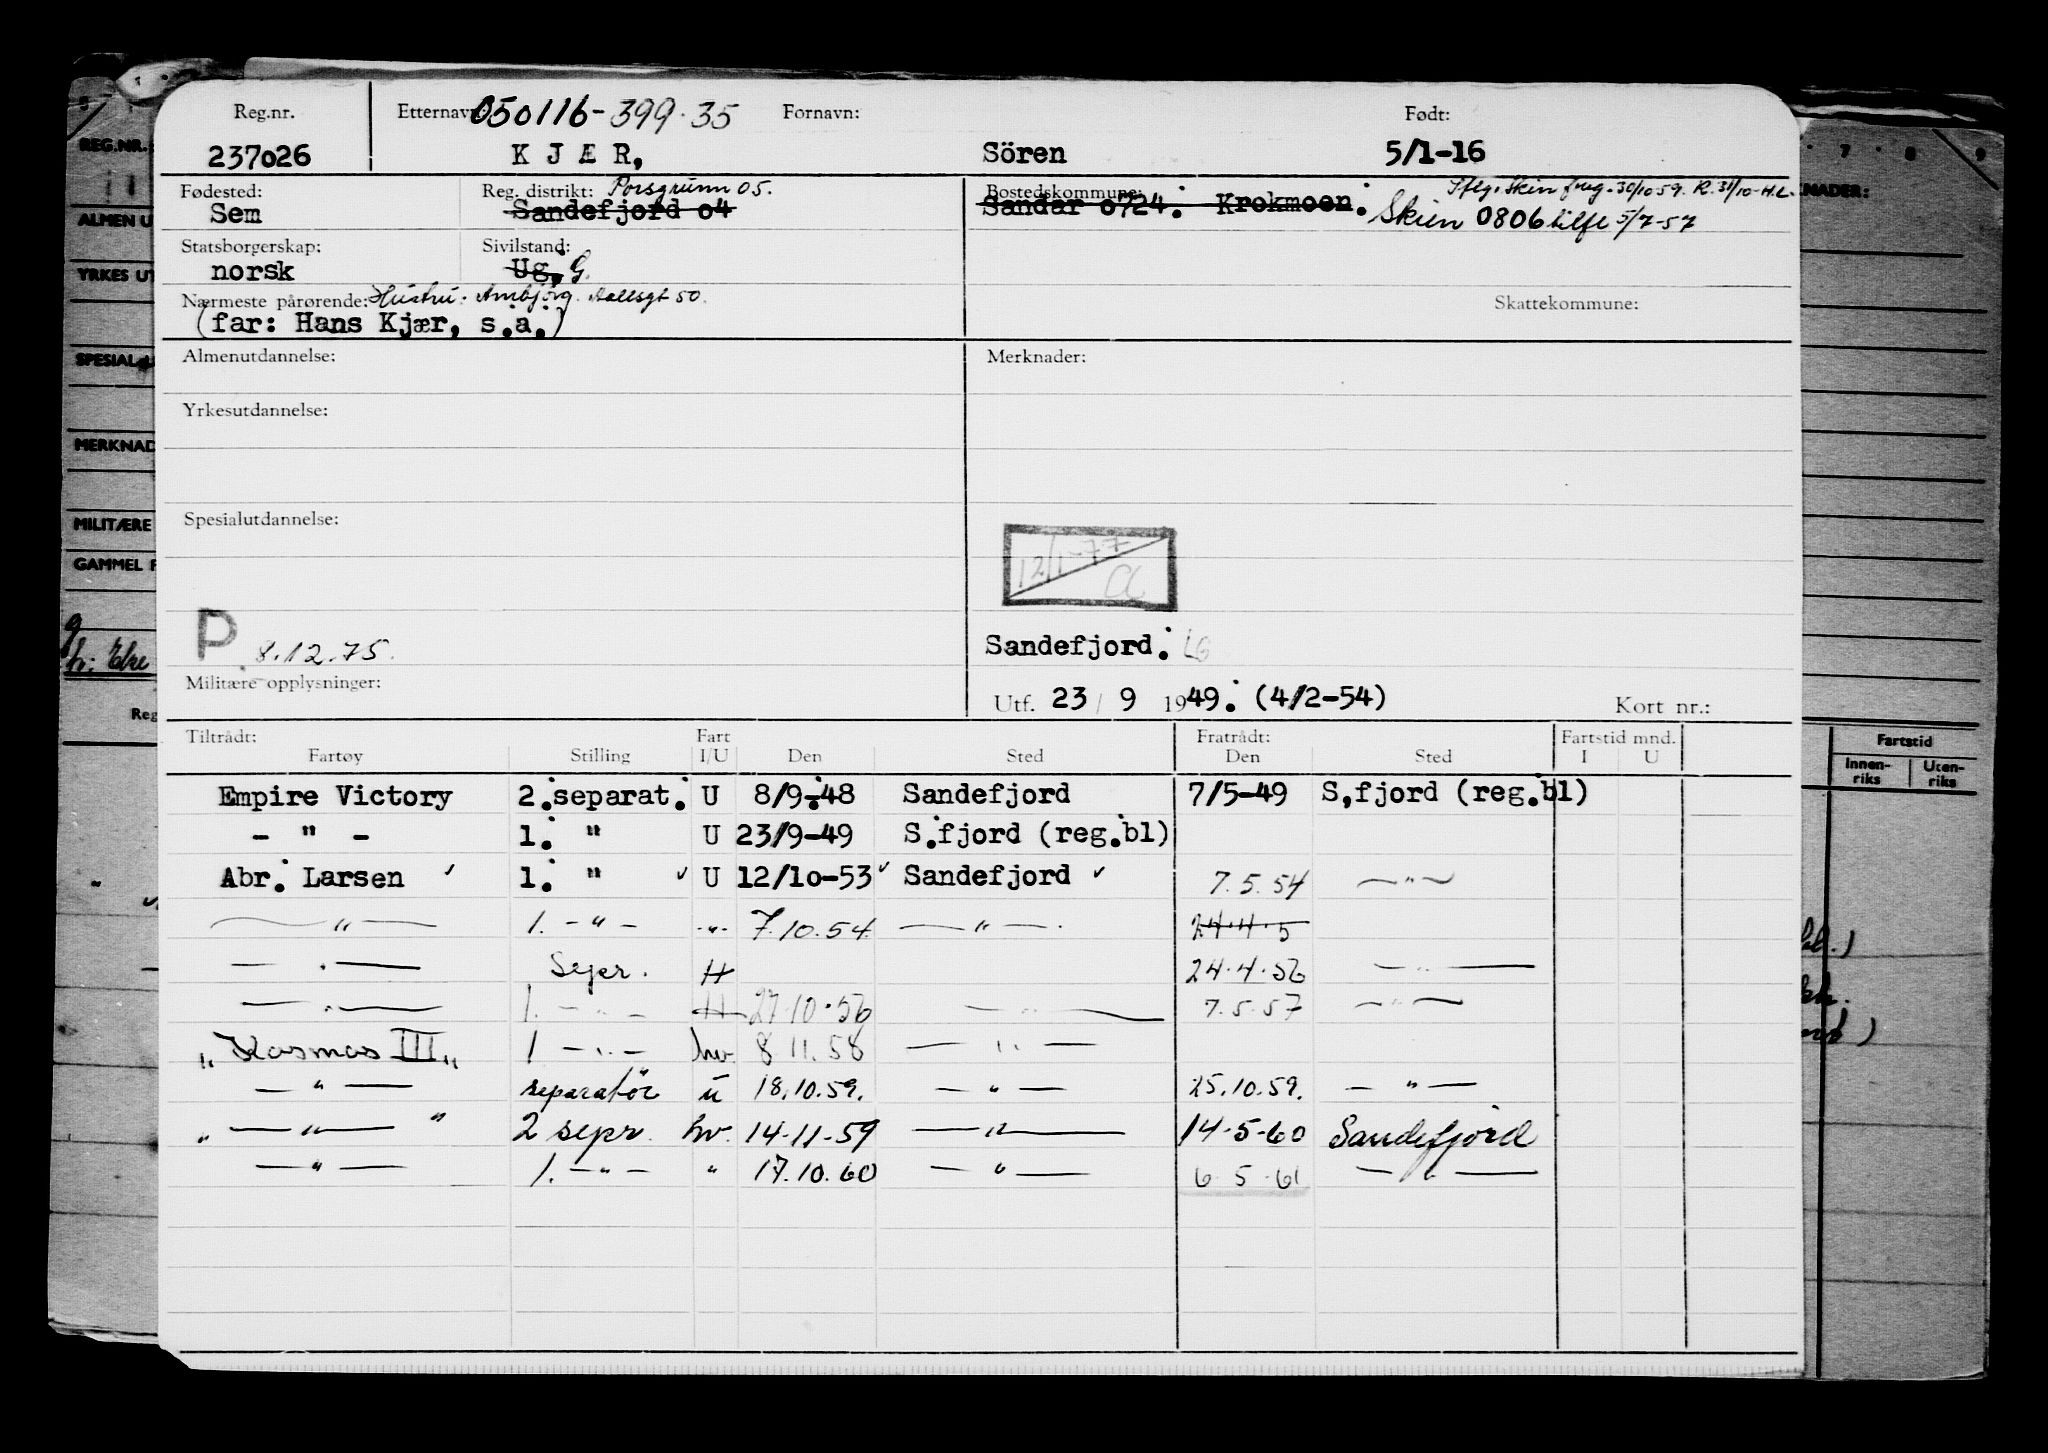 Reg.nr. Etternavn 050116-399.35 Fornavn: Født:
237026 KJÆR, Sören 5/1-16
Fødested: Reg. distrikt: Porsgrunn 05. Bostedskommune: Iflg. Skien frug. 30/10 59. R. 31/10-H.L.
Sem Sandefjord o4 Sandar o724. Krokmoen. Skien 0806 tilfl 5/7-57
Statsborgerskap: Sivilstand:
norsk Ug. G.
Nærmeste pårørende: Hustru: Anbjörg. Hallsgt 50. Skattekommune:
(far: Hans Kjær, s.a.)
Almenutdannelse: Merknader:
Yrkesutdannelse:
Spesialutdannelse:
12/1-77
P 8.12.75.
Sandefjord.
Militære opplysninger:
Utf. 23/9 1949. (4/2-54) Kort nr.:
Tiltrådt: Fart Fratrådt: Fartstid mnd.
Fartøy Stilling I/U Den Sted Den Sted I U
Empire Victory 2.separat. U 8/9-48 Sandefjord 7/5-49 S,fjord (reg.bl)
- " - 1. " U 23/9-49 S.fjord (reg.bl)
Abr. Larsen ✓ 1. " ✓ U 12/10-53 ✓ Sandefjord ✓ 7.5.54 — " —
— " — 1. - " - " 7.10.54 — " — 24.4.5
— " — Sepr. H 24.4.56 — " —
— " — 1. - " - H 27.10.56 — " — 7.5.57 — " —
"Kosmos III" 1 - " - hv. 8 11.58 — " —
— " — separatör u 18.10.59. — " — 25.10.59. — " —
" — " — " 2 sepr. hv. 14-11-59 — " — 14-5-60 Sandefjord
— " — 1. - " - " 17.10.60 — " — 6 5.61 — " —
REG.NR.
ALMEN U
YRKES UT
SPESIAL
MERKNAD
MILITÆRE
GAMMEL F
Reg
7 8 9
KNADER:
Fartstid
Innen-
riks
Uten-
riks